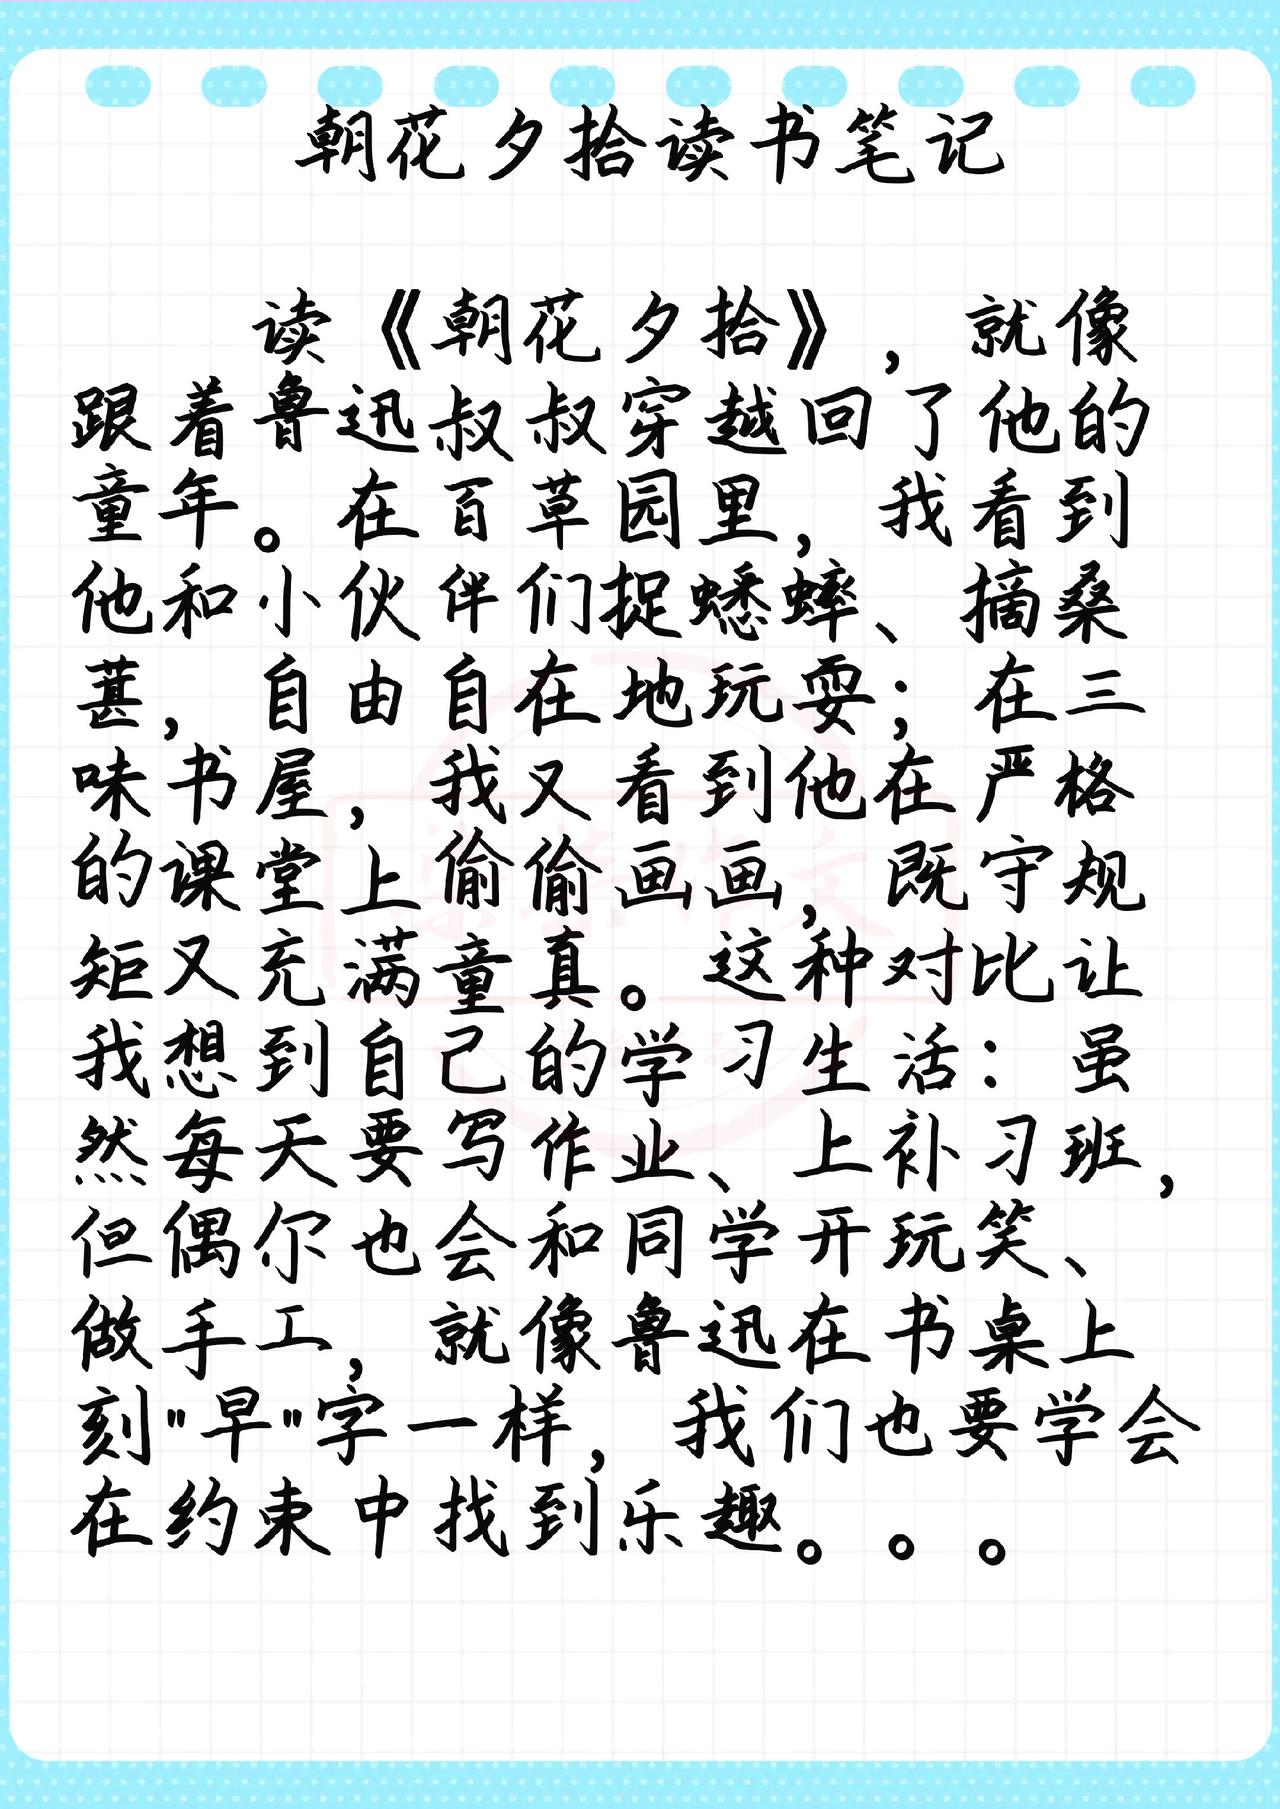 朝花夕拾读书笔记
读《朝花夕拾》,就像
跟着鲁迅叔叔穿越回了他的
童年。在百草园里,我看到
他和小伙伴们捉蟋蟀、摘桑
葚,自由自在地玩耍;在三
味书屋,我又看到他在严格
的课堂上偷偷画画,既守规
矩又充满童真。这种对比让
我想到自己的学习生活:虽
然每天要写作业、上补习班,
但偶尔也会和同学开玩笑、
做手工,就像鲁迅在书桌上
刻"早"字一样,我们也要学会
在约束中找到乐趣。。。